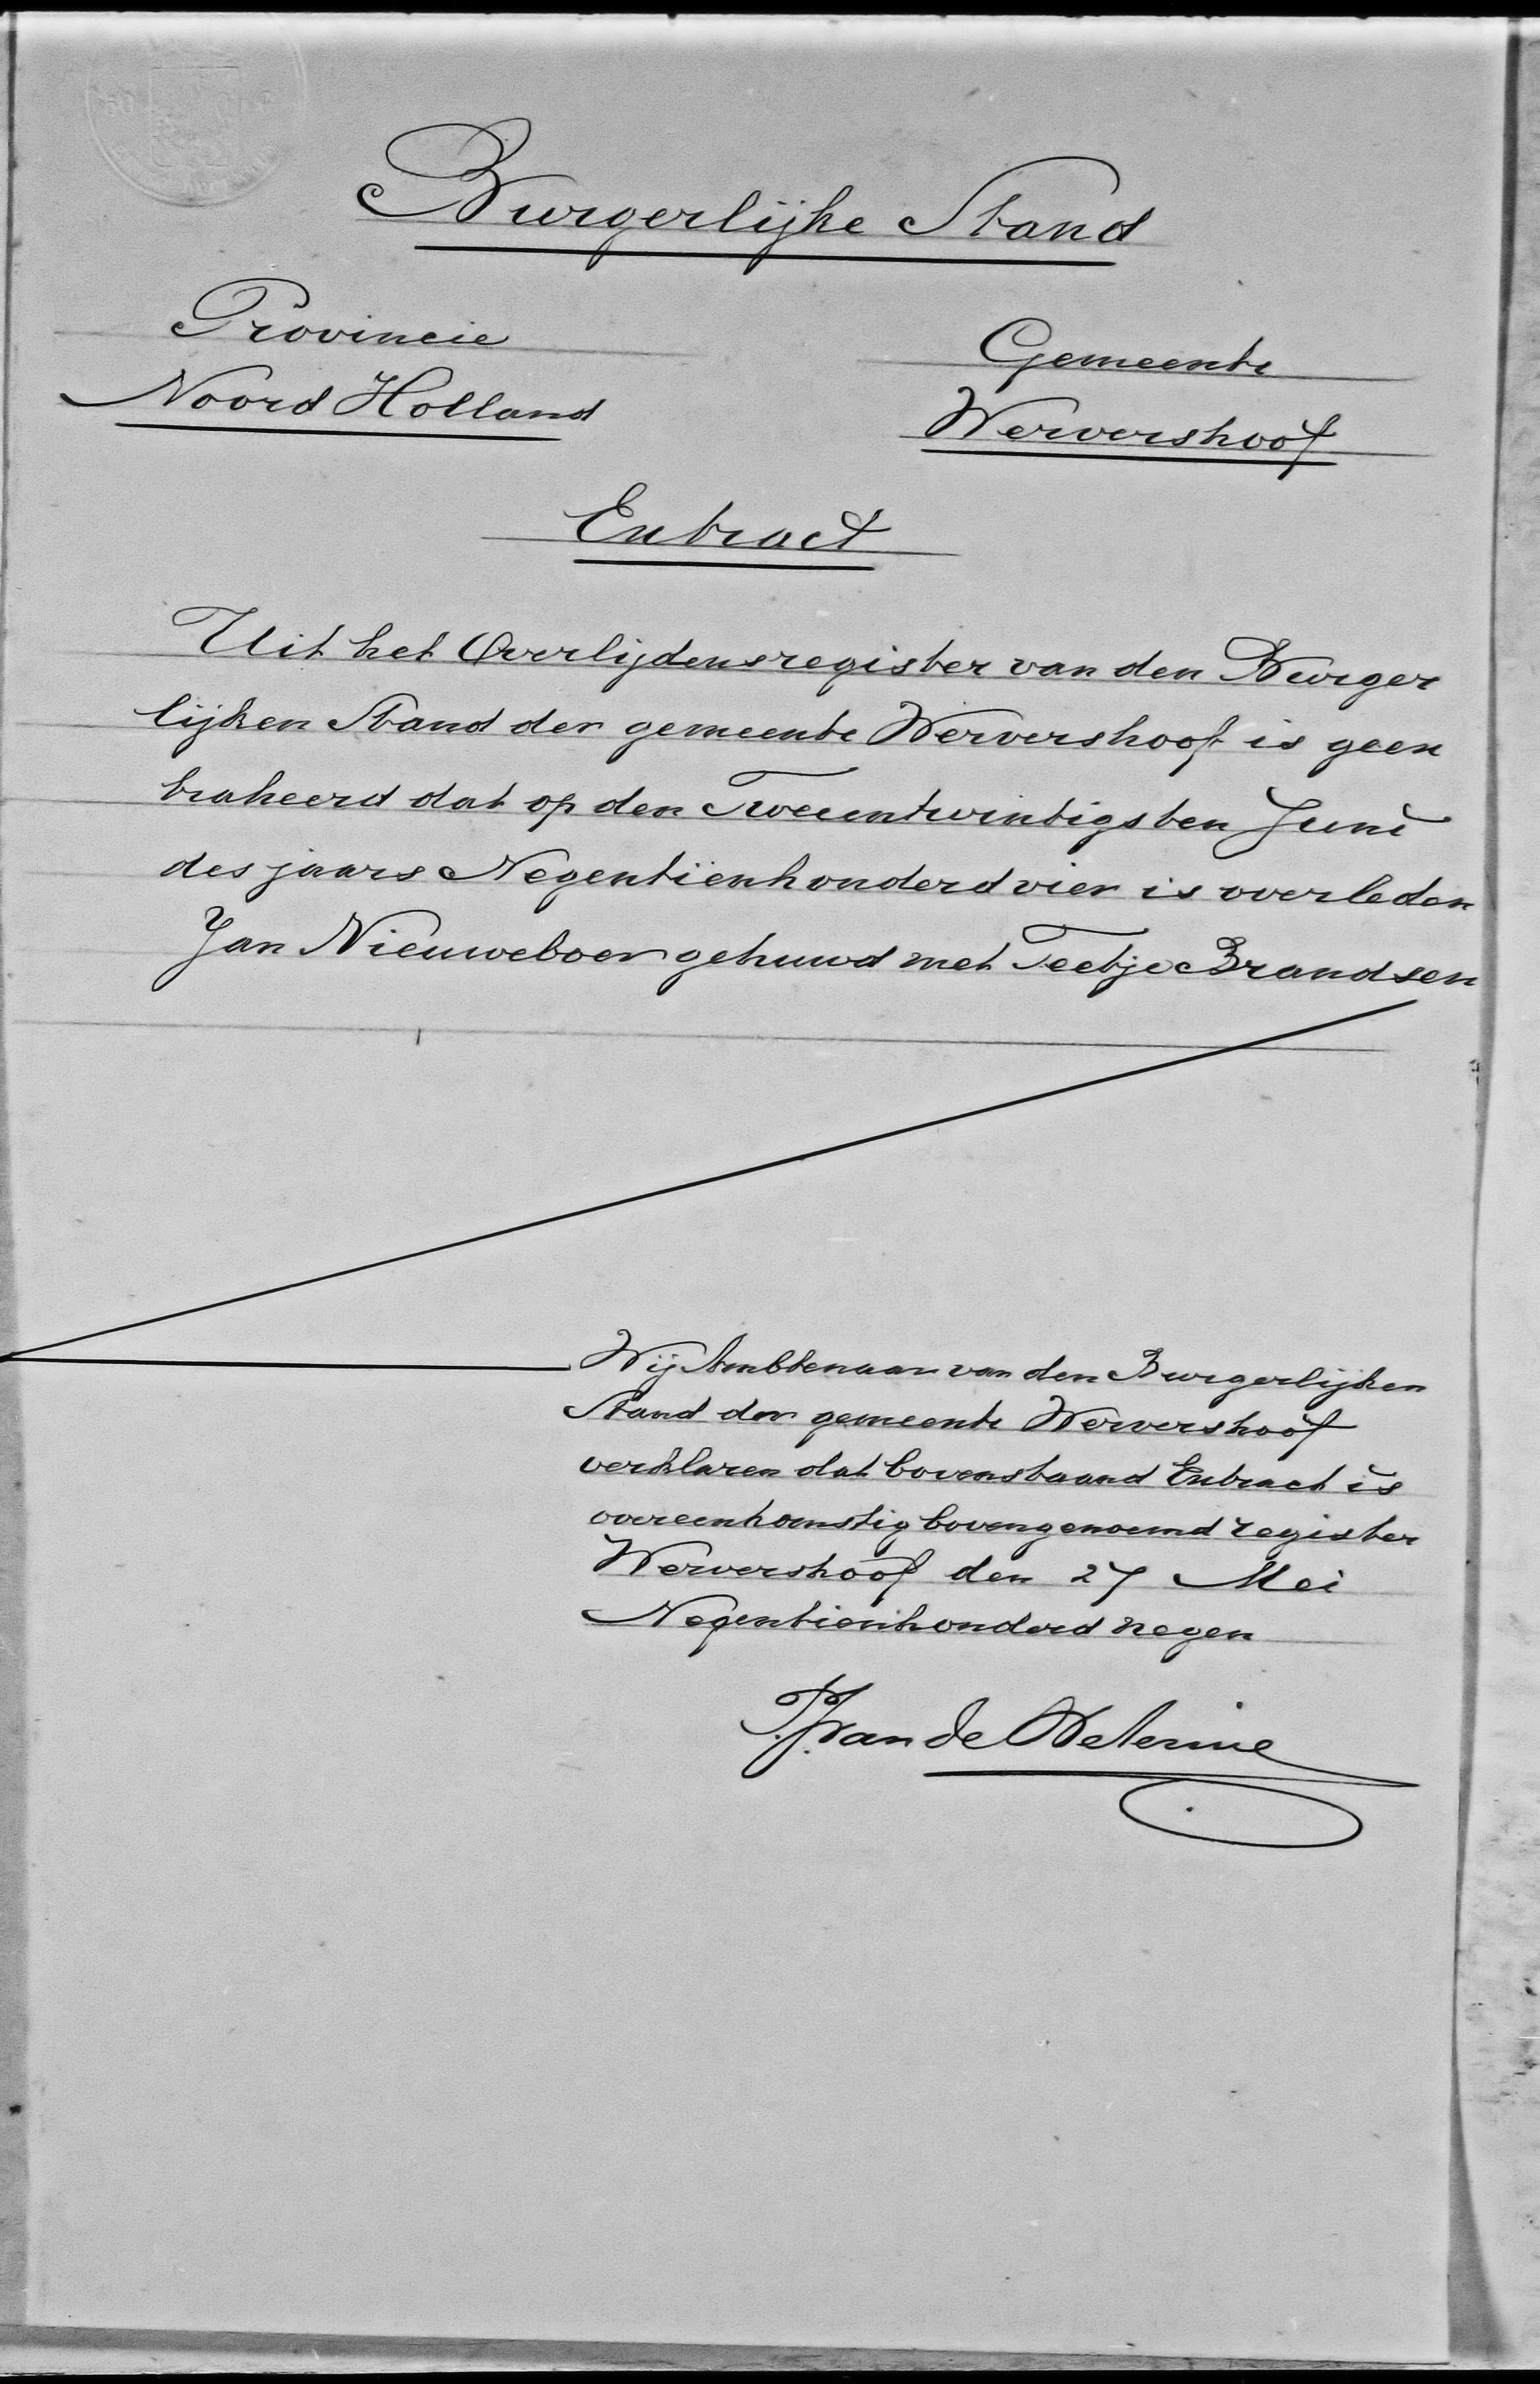 Burgerlijke Stand
Provincie
Noord Holland
Gemeente
Wervershoof
Extract
Uit het Overlijdensregister van den Burger
lijken Stand der gemeente Wervershoof is geex
traheerd dat op den Tweeentwintigsten Juni
des jaars Negentienhonderd vier is overleden
Jan Nieuweboer gehuwd met Teetje Brandsen
Wij Ambtenaar van den Burgerlijken
Stand der gemeente Wervershoof
verklaren dat bovenstaand Extract is
overeenkomstig bovengenoemd register
Wervershoof den 27 Mei
Negentienhonderd negen
van de